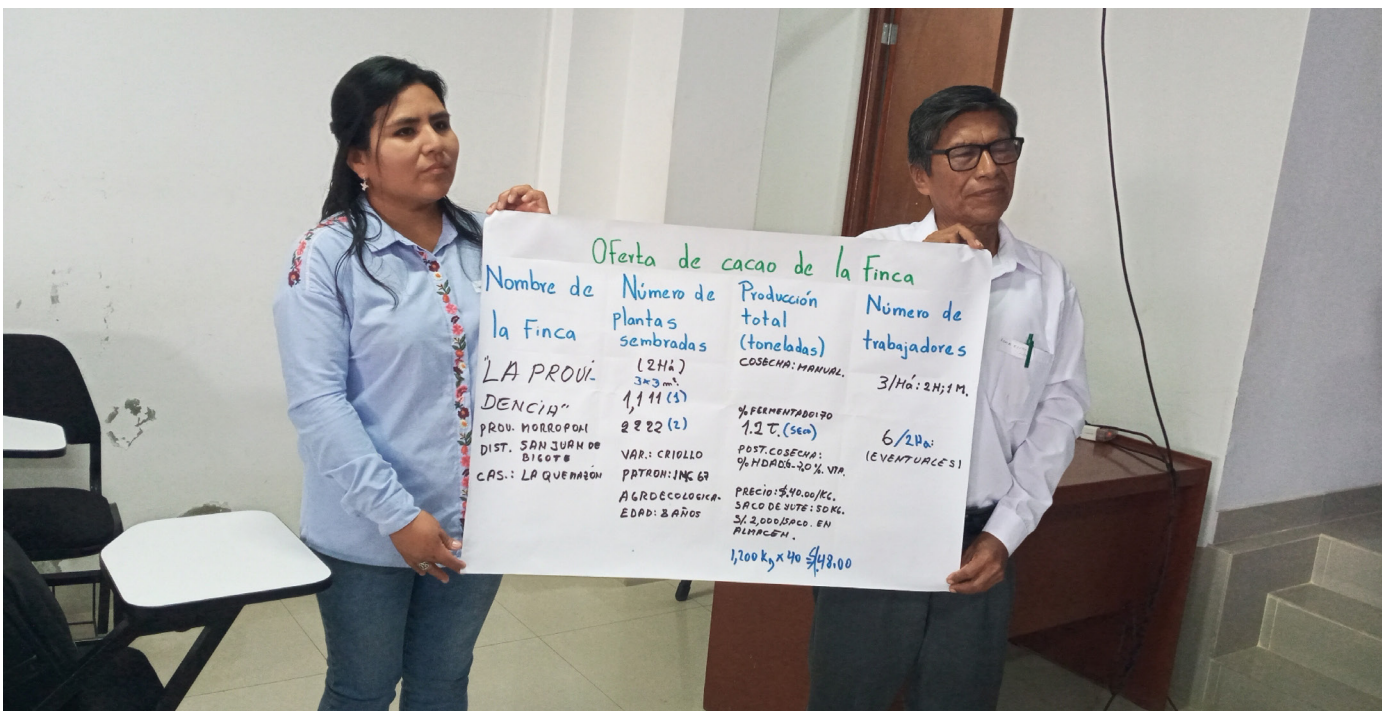 Oferta de cacao de la Finca
Nombre de
la Finca
"LA PROVI-
DENCIA"
PROV. MORROPON
DIST. SAN JUAN DE
BIGOTE
CAS.: LA QUEMAZÓN
Número de
plantas
sembradas
(2Há)
3x3 m².
1,111 (1)
2222 (2)
VAR.: CRIOLLO
PATRON: IMC 67
AGROECOLOGICA.
EDAD: 8 AÑOS
Producción
total
(toneladas)
COSECHA: MANUAL.
% FERMENTADO: 70
1.2 T. (SECO)
POST. COSECHA:
PRECIO: S/.40.00/KG.
SACO DE YUTE: 50KG.
S/. 2,000/SACO. EN
ALMACEN.
1,200 kg x 40 = S/.48.00
Número de
trabajadores
3/Há: 2H; 1M.
6/2Ha:
(EVENTUALES)